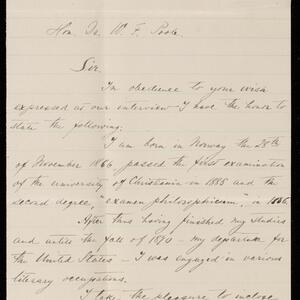 Hon. Dr. W. F. Poole.
Sir.
In obedience to your wish
expressed at our interview – I have the honor to
state the following:
I am born in Norway the 28th
of November 1866, passed the first examination
of the university of Christiania in 1885 and the
second degree, "examen philosophicum", in 1886.
After thus having finished my studies
and untill the fall of 1890 – my departure for
the United States – I was engaged in various
literary occupations.
I take the pleasure to inclose